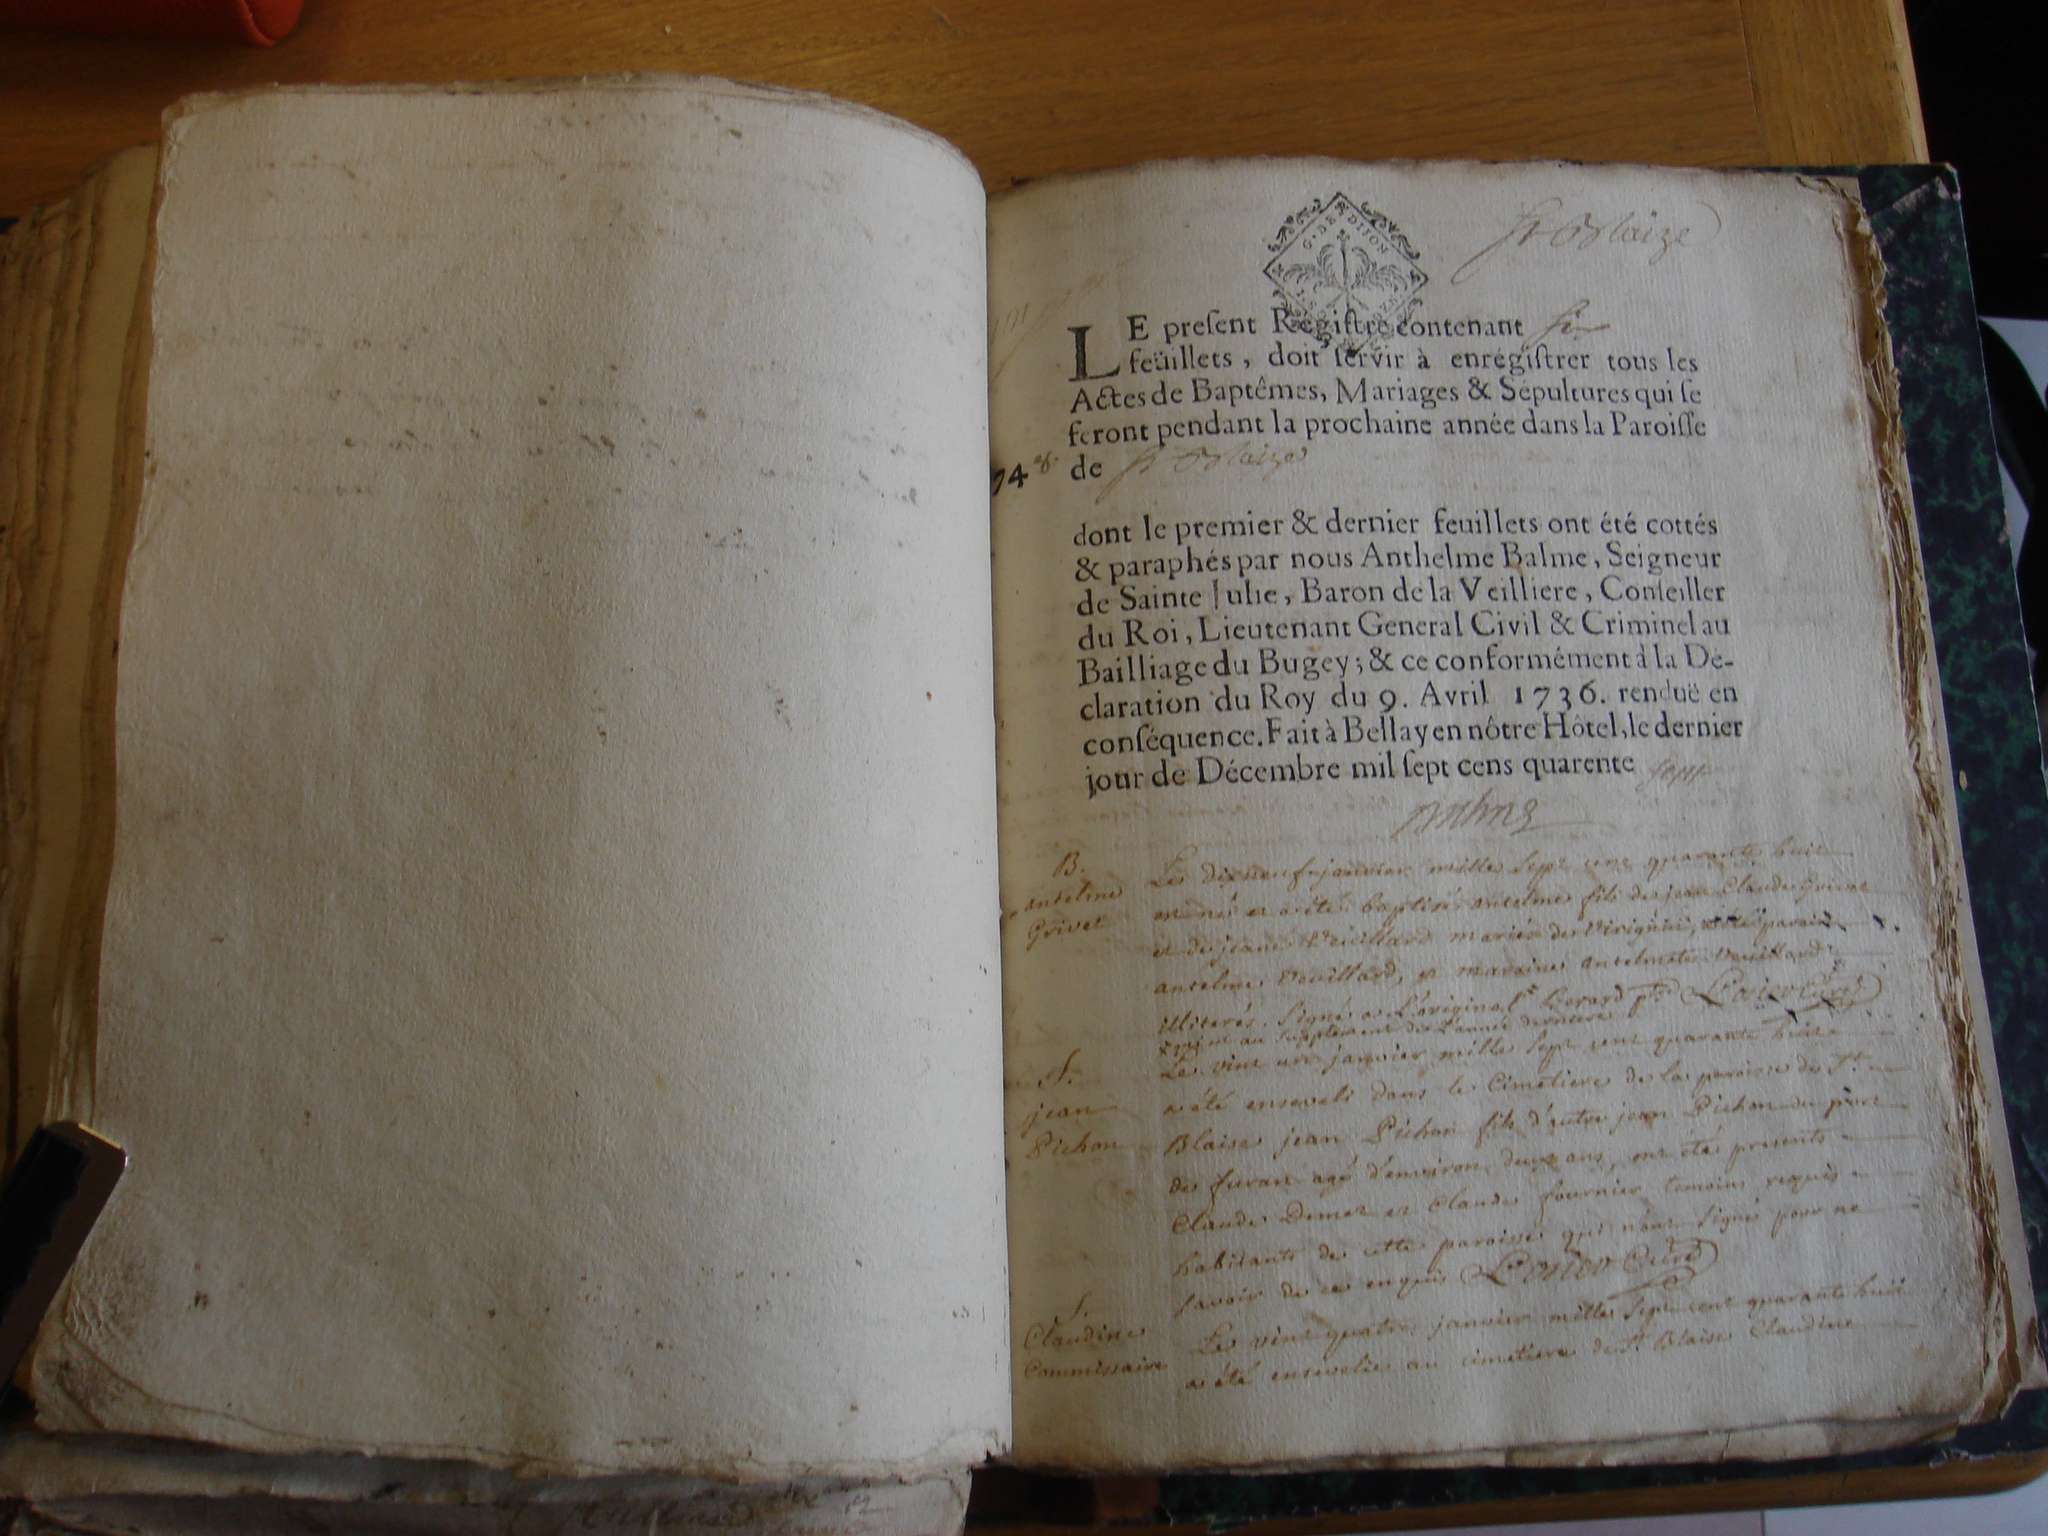 G. DE DIJON
St Blaize
LE preſent Regiſtre contenant six
feüillets, doit ſervir à enrégiſtrer tous les
Actes de Baptêmes, Mariages & Sépultures qui ſe
feront pendant la prochaine année dans la Paroiſſe
de St Blaize
748.
dont le premier & dernier feuillets ont été cottés
& paraphés par nous Anthelme Balme, Seigneur
de Sainte Julie, Baron de la Veilliere, Conſeiller
du Roi, Lieutenant General Civil & Criminel au
Bailliage du Bugey; & ce conformément à la Dé-
claration du Roy du 9. Avril 1736. renduë en
conſéquence. Fait à Bellay en nôtre Hôtel, le dernier
jour de Décembre mil ſept cens quarente sept
B.
anselme
Grivet
Le dixneuf janvier mille sept cent quarante huit
est né et a été baptisé anselme fils de jean Claude Grivet
et de jeane Veuillard mariés de Virignin, parain
anselme Veuillard, et maraine anselmete Veuillard
illiterés. signé a L'original Berard ptre Curé
au supplement de L'année derniere
S.
jean
Pichon
Le vint un janvier mille sept cent quarante huit
a été enseveli dans le Cimetiere de la paroisse de St
Blaise jean Pichon fils d'autre jean Pichon du port
de furan agé d'environ deux ans, ont été presents
Claude Demet et Claude fournier temoins requis
habitants de cette paroisse qui n'ont signé pour ne
savoir de ce enquis Curé
S.
Claudine
Commissaire
Le vint quatre janvier mille sept cent quarante huit
a été ensevelie au cimetiere de St Blaise Claudine